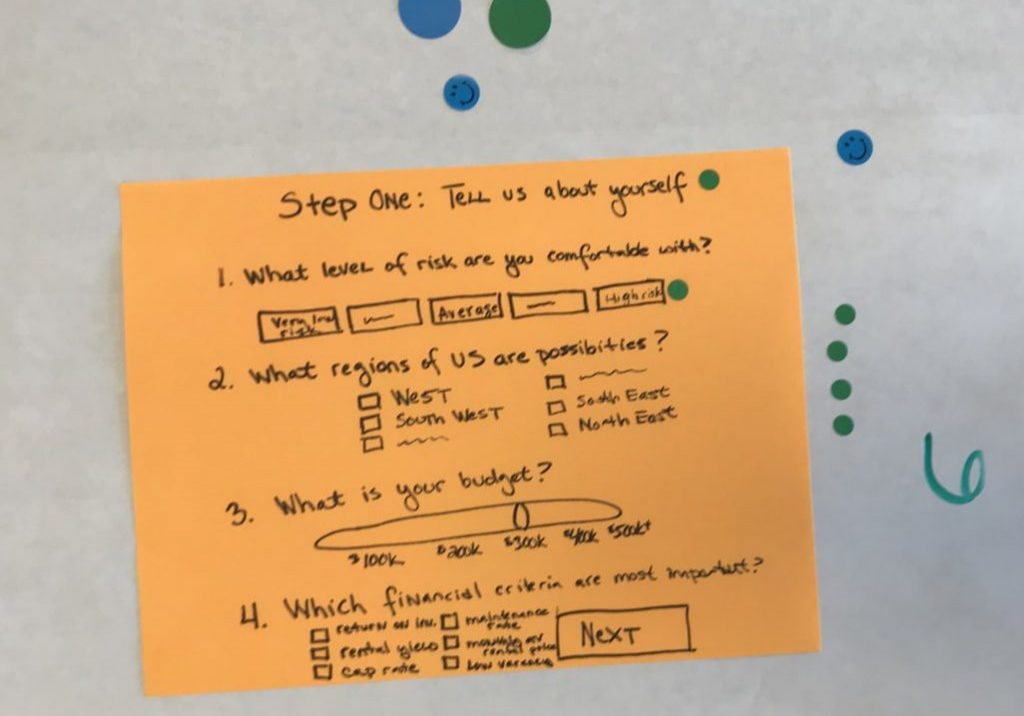 Step One: Tell us about yourself
1. What level of risk are you comfortable with?
Very low risk Average High risk
2. What regions of US are possibities?
West
South West South East
North East
3. What is your budget?
$100k $200k $300k $400k $500k+
4. Which financial criteria are most important?
return on inv. maintenance rate
rental yield monthly rental price
cap rate low vacancy
Next
6